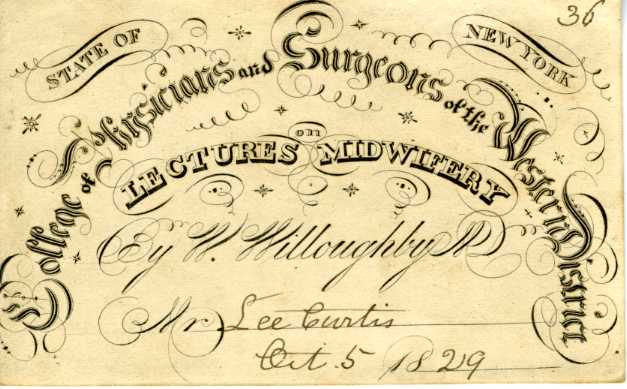 36
STATE OF NEW YORK
College of Physicians and Surgeons of the Western District
LECTURES on MIDWIFERY
By W. Willoughby M D
Mr Lee Curtis
Oct. 5 1829